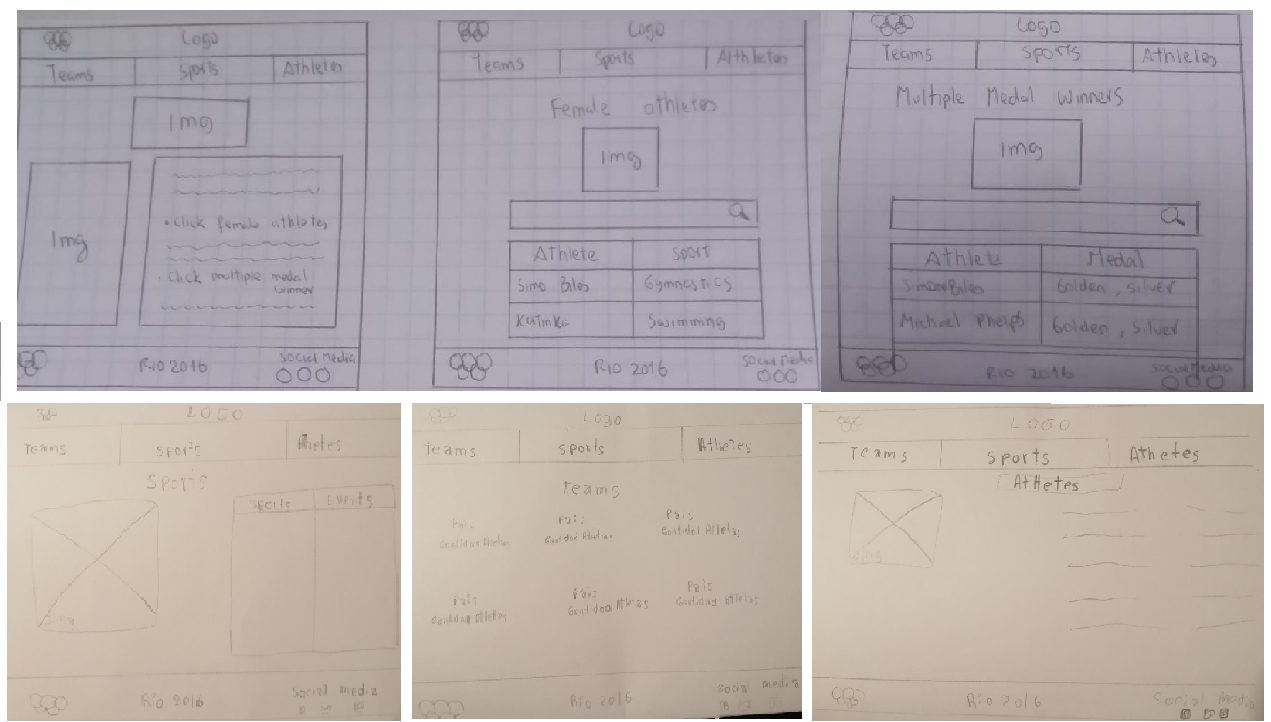 Logo
Teams Sports Athletes
Img
Img
• Click female athletes
• Click multiple medal
winner
Rio 2016
Social Media
Logo
Teams Sports Athletes
Female athletes
Img
Athlete Sport
Simo Biles Gymnastics
Swimming
Rio 2016
Social Media
Logo
Teams Sports Athletes
Multiple Medal Winners
Img
Athlete Medal
Simon Biles Golden, Silver
Michael Phelps Golden, Silver
Rio 2016
Social Media
LOGO
Teams Sports Athetes
Sports
Sports Events
Img
Rio 2016
Social media
LOGO
Teams Sports Athetes
Teams
Pais Pais Pais
Pais Pais Pais
Rio 2016
Social media
LOGO
Teams Sports Athetes
Athetes
Img
Rio 2016
Social Media